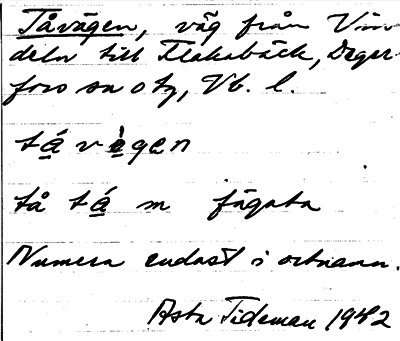 Tåvägen, väg från Vin-
deln till Flakabäck, Deger-
fors sn otg, Vb. l.
tá̱ vè̱gen
tå tá̱ m fägata
Numera endast i ortnamn.
Asta Tideman 1942